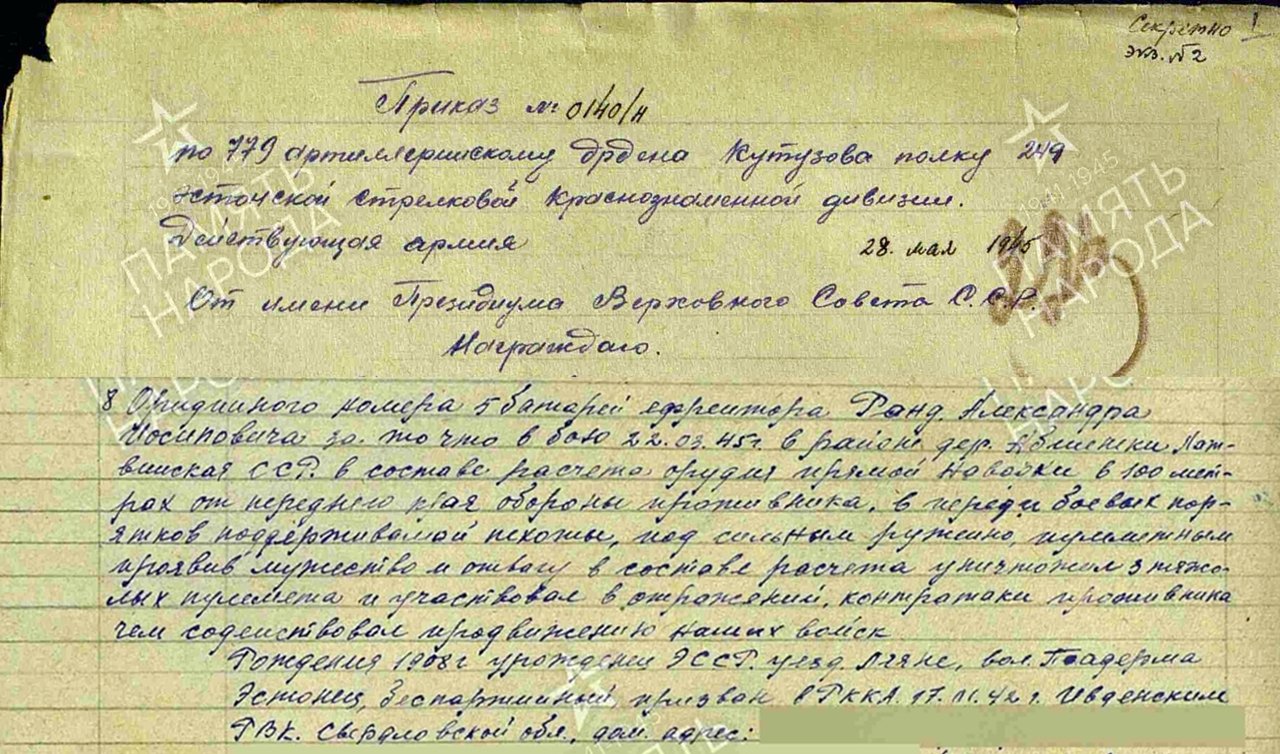 Секретно 1
экз. №2
Приказ № 0140/н
по 779 артиллериискому Ордена Кутузова полку 249
эстонской стрелковой Краснознаменной дивизии.
Действующая армия 28. мая 1945
От имени Президиума Верховного Совета С.С.Р.
Награждаю.
8 Орудииного номера 5 батареи ефреитора Ранд. Александра
Иосиповича за. то что в бою 22.03.45г. в районе дер. Лат-
вииская ССР. в составе расчета орудия прямой наводки в 100 мет-
рах от переднего края обороны противника, в переди боевых пор-
ятков поддерживаемой пехоты, под сильным ружейно, пулеметным
проявив мужество и отвагу в составе расчета уничтожил 3 тяжо-
лых пулемета и участвовал в отражений, контратаки противника
чем содеиствовал продвижению наших войск
Рождения 1908г урожденец ЭССР. уезд. Ляяне, вол. Паадерма
Эстонец, беспартийный, призван в РККА. 17.11.42 г. Ивденским
РВК. Свердловской обл., дом. адрес:
ПАМЯТЬ
НАРОДА
1941 1945
ПАМЯТЬ
НАРОДА